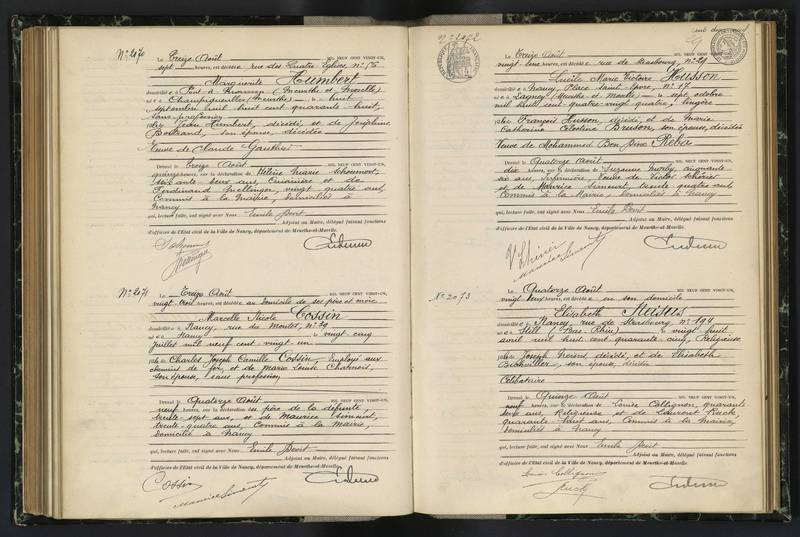 N° 2070
Le Treize Août MIL NEUF CENT VINGT-UN,
sept heures, est décédée rue des Quatre Eglises, n° 56
Marguerite Humbert
domiciliée à Pont à Mousson (Meurthe et Moselle)
née à Champigneulles (Meurthe) le huit
septembre mil huit cent quarante huit,
sans profession
fille Jean Humbert, décédé, et de Joséphine
Bertrand, son épouse, décédée
Veuve de Claude Gauthier
Dressé le Treize Août MIL NEUF CENT VINGT-UN,
quinze heures, sur la déclaration de Marie
soixante deux ans, Cuisinière et de
Ferdinand Mellinger, vingt quatre ans,
Commis à la Mairie, domiciliés à
Nancy
qui, lecture faite, ont signé avec Nous Emile Devit
Adjoint au Maire, délégué faisant fonctions
d'officier de l'Etat civil de la Ville de Nancy, département de Meurthe-et-Moselle.
N° 2071
Le Treize Août MIL NEUF CENT VINGT-UN,
vingt trois heures, est décédée au domicile de ses père et mère
Marcelle Nicole Cossin
domiciliée à Nancy, rue du Montet, n° 39
née à Nancy le vingt cinq
juillet mil neuf cent vingt un
fille de Charles Joseph Camille Cossin, Employé aux
chemins de fer, et de Marie Louise
son épouse, sans profession
Dressé le Quatorze Août MIL NEUF CENT VINGT-UN,
neuf heures, sur la déclaration du père de la défunte,
trente sept ans, et de Maurice Simonet,
trente quatre ans, Commis à la Mairie,
domicilié à Nancy
qui, lecture faite, ont signé avec Nous Emile Devit
Adjoint au Maire, délégué faisant fonctions
d'officier de l'Etat civil de la Ville de Nancy, département de Meurthe-et-Moselle.
Cossin
Maurice Simonet
N° 2072
Le Treize Août MIL NEUF CENT VINGT-UN,
vingt une heures, est décédée rue de Strasbourg, n° 29
Lucile Marie Victoire Husson
domiciliée à Nancy, Place Saint Epvre, n° 17
née à Lagney (Meurthe et Moselle) le sept octobre
mil huit cent quatre vingt quatre, lingère
fille François Husson, décédé, et de Marie
Catherine Célestine Brusson, son épouse, décédée
Veuve de Mohammed Ben Reba
Dressé le Quatorze Août MIL NEUF CENT VINGT-UN,
dix heures, sur la déclaration de Suzanne cinquante
six ans, Infirmière, Veuve de Victor
et de Maurice Simonet, trente quatre ans,
Commis à la Mairie, domiciliés à Nancy
qui, lecture faite, ont signé avec Nous Emile Devit
Adjoint au Maire, délégué faisant fonctions
d'officier de l'Etat civil de la Ville de Nancy, département de Meurthe-et-Moselle.
Maurice Simonet
N° 2073
Le Quatorze Août MIL NEUF CENT VINGT-UN,
vingt deux heures, est décédée en son domicile
Elisabeth
domiciliée à Nancy, rue de Strasbourg, n° 194
née à Still (Bas Rhin) le vingt huit
avril mil huit cent quarante cinq, Religieuse
fille de Joseph décédé, et de Elisabeth
son épouse, décédée
Célibataire
Dressé le Quinze Août MIL NEUF CENT VINGT-UN,
neuf heures, sur la déclaration de Louise Collignon, quarante
deux ans, Religieuse et de Laurent Ruck,
quarante huit ans, Commis à la Mairie,
domiciliés à Nancy
qui, lecture faite, ont signé avec Nous Emile Devit
Adjoint au Maire, délégué faisant fonctions
d'officier de l'Etat civil de la Ville de Nancy, département de Meurthe-et-Moselle.
Louise Collignon
Ruck